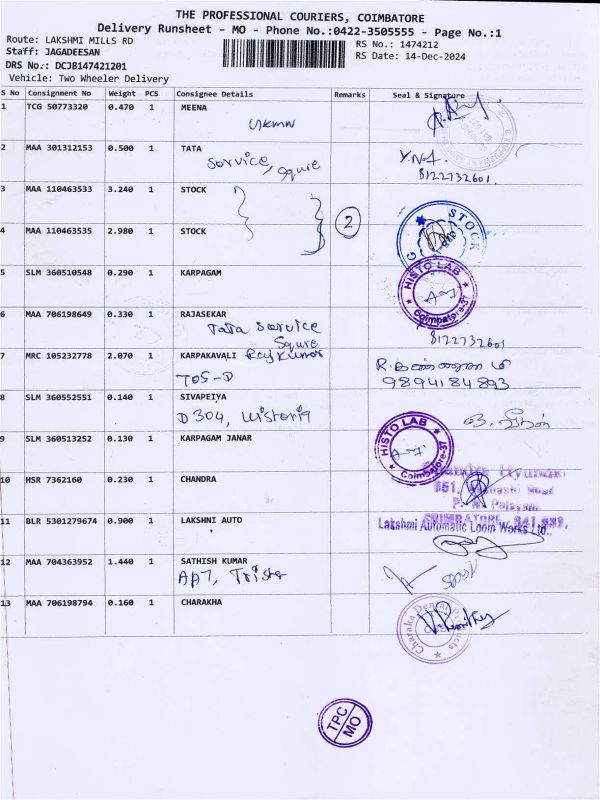 THE PROFESSIONAL COURIERS, COIMBATORE
Delivery Runsheet - MO - Phone No.:0422-3505555 - Page No.:1
Route: LAKSHMI MILLS RD
Staff: JAGADEESAN
DRS No.: DCJB147421201
Vehicle: Two Wheeler Delivery
RS No.: 1474212
RS Date: 14-Dec-2024
S No Consignment No Weight PCS Consignee Details Remarks Seal & Signature
1 TCG 50773320 0.470 1 MEENA
2 MAA 301312153 0.500 1 TATA
Service, Squre
8122732601
3 MAA 110463533 3.240 1 STOCK
2
4 MAA 110463535 2.980 1 STOCK
STOCK
5 SLM 360510548 0.290 1 KARPAGAM
HISTO LAB
Coimbatore-37
6 MAA 706198649 0.330 1 RAJASEKAR
Tata Service
Squre
8122732601
7 MRC 105232778 2.070 1 KARPAKAVALI Rajkumar
TOS-D
9894184893
8 SLM 360552551 0.140 1 SIVAPEIYA
D 304, Wistoria
9 SLM 360513252 0.130 1 KARPAGAM JANAR
HISTO LAB
Coimbatore-37
10 HSR 7362160 0.230 1 CHANDRA
11 BLR 5301279674 0.900 1 LAKSHNI AUTO
Lakshmi Automatic Loom Works Ltd.,
12 MAA 704363952 1.440 1 SATHISH KUMAR
13 MAA 706198794 0.160 1 CHARAKHA
Charaka Dental Products
TPC
MO